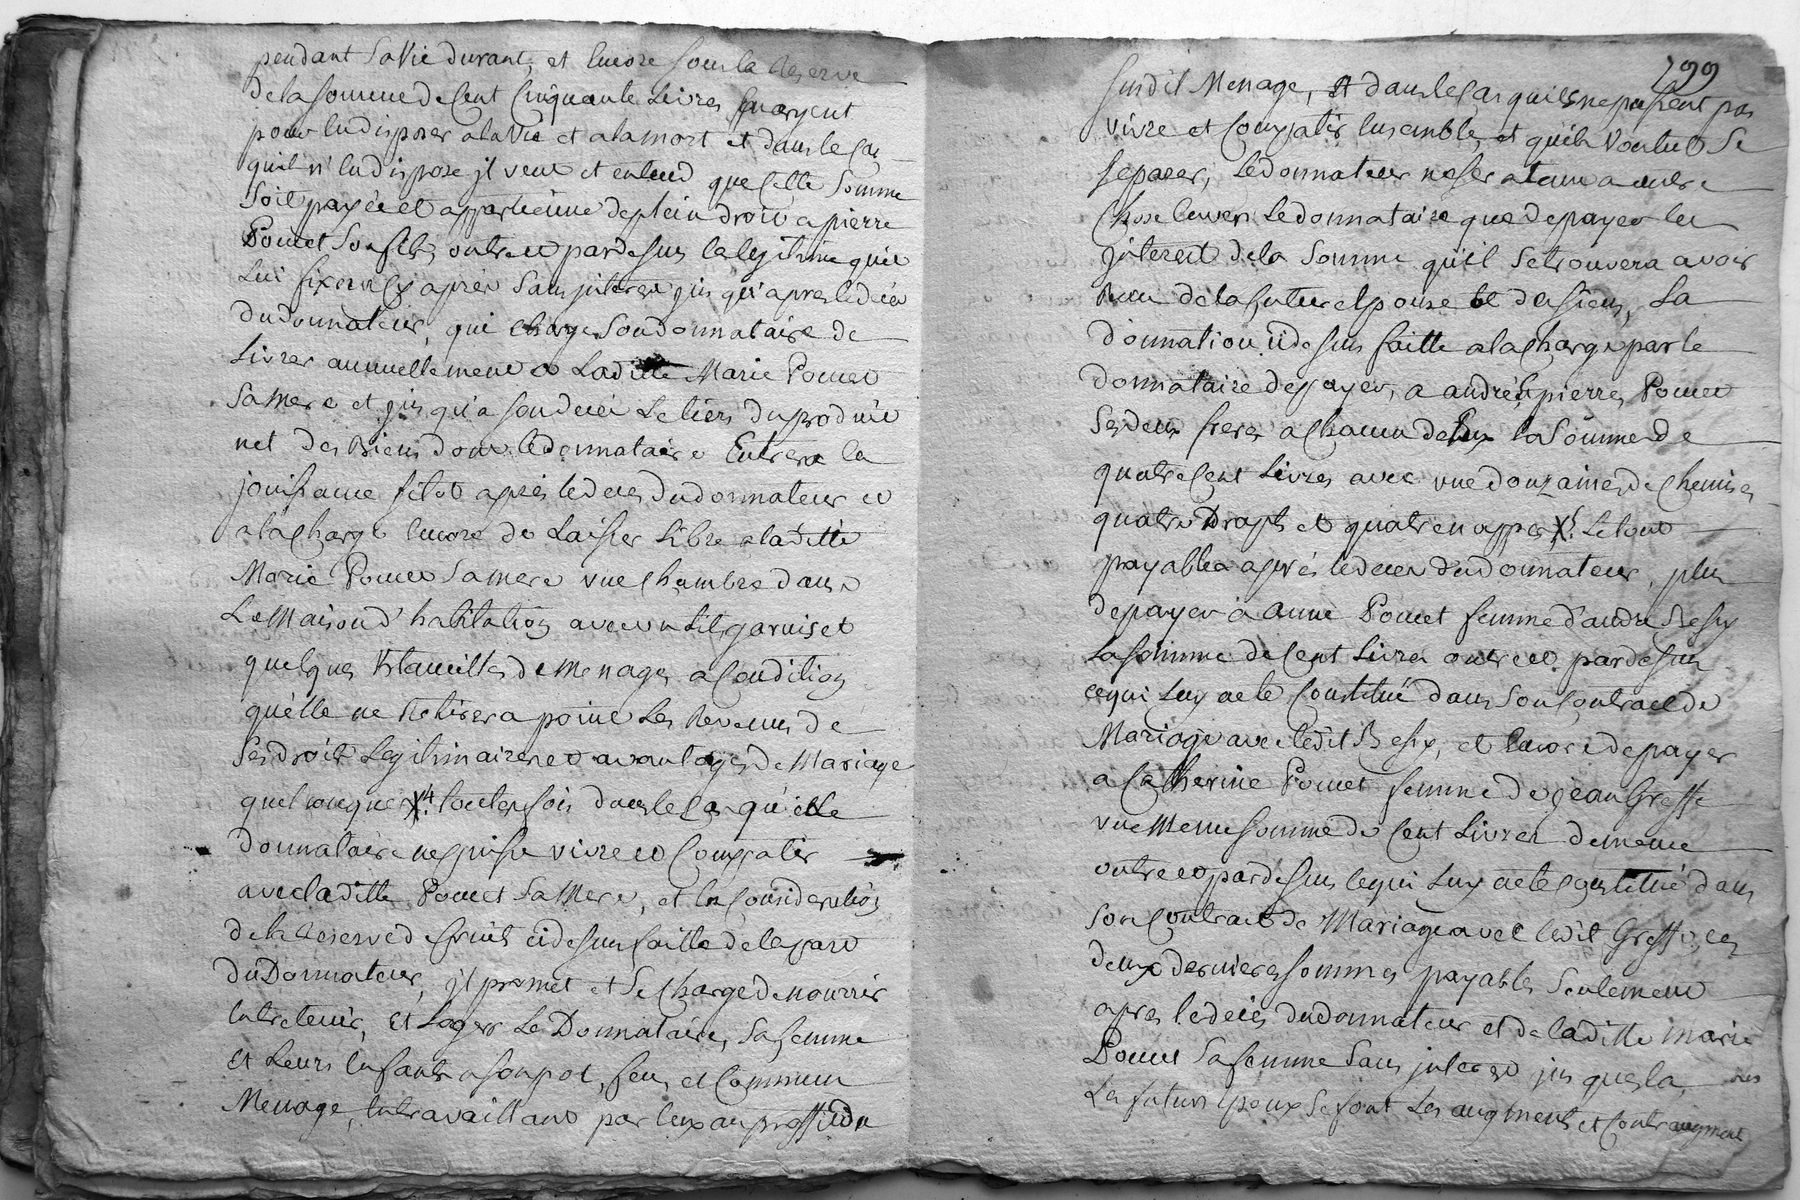 pendant sa vie durant, et encore sous la Reserve
de la somme de Cent Cinquante Livres en argent
pour en disposer a la vie et a la mort et dans le cas
quil n'en dispose jl veut et entend que cette somme
soit payée et appartiénne de plein droit a pierre
Pouet son fils, outre et par dessus la legitime quil
lui fixera cy aprés sans jnterest jus qu'apres le decés
du donnateur, qui charge son donnataire de
Livrer annuellement a Laditte Marie Pouet
sa mere et jus qu'a son decés le tiers du produit
net des Biens dont le donnataire Entrera en
jouissance sitot aprés le deces du donnateur et
a la charge encore de Laisser Libre a laditte
Marie Pouet sa mere une chambre dans
La Maison d'habitation avec un Lit garnis et
quelques Ustancilles de menages a Condition
qu'elle ne Retirera point les Revenus de
ses droits Legitimaires et avantages de Mariage
quelconques X4. toutes fois dans le cas qu'ille
donnataire ne puisse vivre et Compatir
avec laditte Pouet sa Mere, et en Consideration
de la reserve de fruits ci dessus faitte de la part
du Donnateur, jl promet et se charge de nourrir
Entretenir, et Loger Le Donnataire, sa femme
Et Leurs Enfants a son pot, feu, et Commun
Menage, En travaillant par Eux au proffit du
799
susdit Menage, et dans le cas quils ne pussent pas
vivre et Compatir Ensemble, et qu'ils Voulut se
separer, le donnateur ne sera tenu a autre
Chose Envers le donnataire que de payer les
jnterest de la somme qu'il se trouvera avoir
Recu de la future Epouse et d'essiens, La
donnation ci dessus faitte a la charge par le
donnataire de payer, a andré & pierre Pouet
ses deux freres a chacun deux la somme de
quatre Cent Livres avec une douzaine de chemises
quatre Draps et quatre nappes X. Le tout
payables aprés le deces du donnateur, plus
de payer a anne Pouet femme d'andré Ressy
La somme de Cent Livres outre et par dessus
ce qui Luy a ete Constitué dans son Contract de
Mariage avec ledit Ressy, et Encore de payer
a Catherine Pouet femme de jean Greffe
une meme somme de Cent Livres de meme
outre et par dessus ce qui Luy a ete Constitué dans
son Contract de Mariage avec ledit Greffe, ces
deux dernieres sommes payables seulement
apres le decés du donnateur et de laditte Marie
Pouet sa femme sans jnterest jus ques la,
Les futurs Epoux se font Les augments et Contraugment